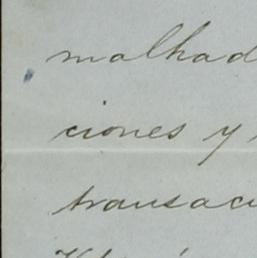 malhad
ciones y
transac